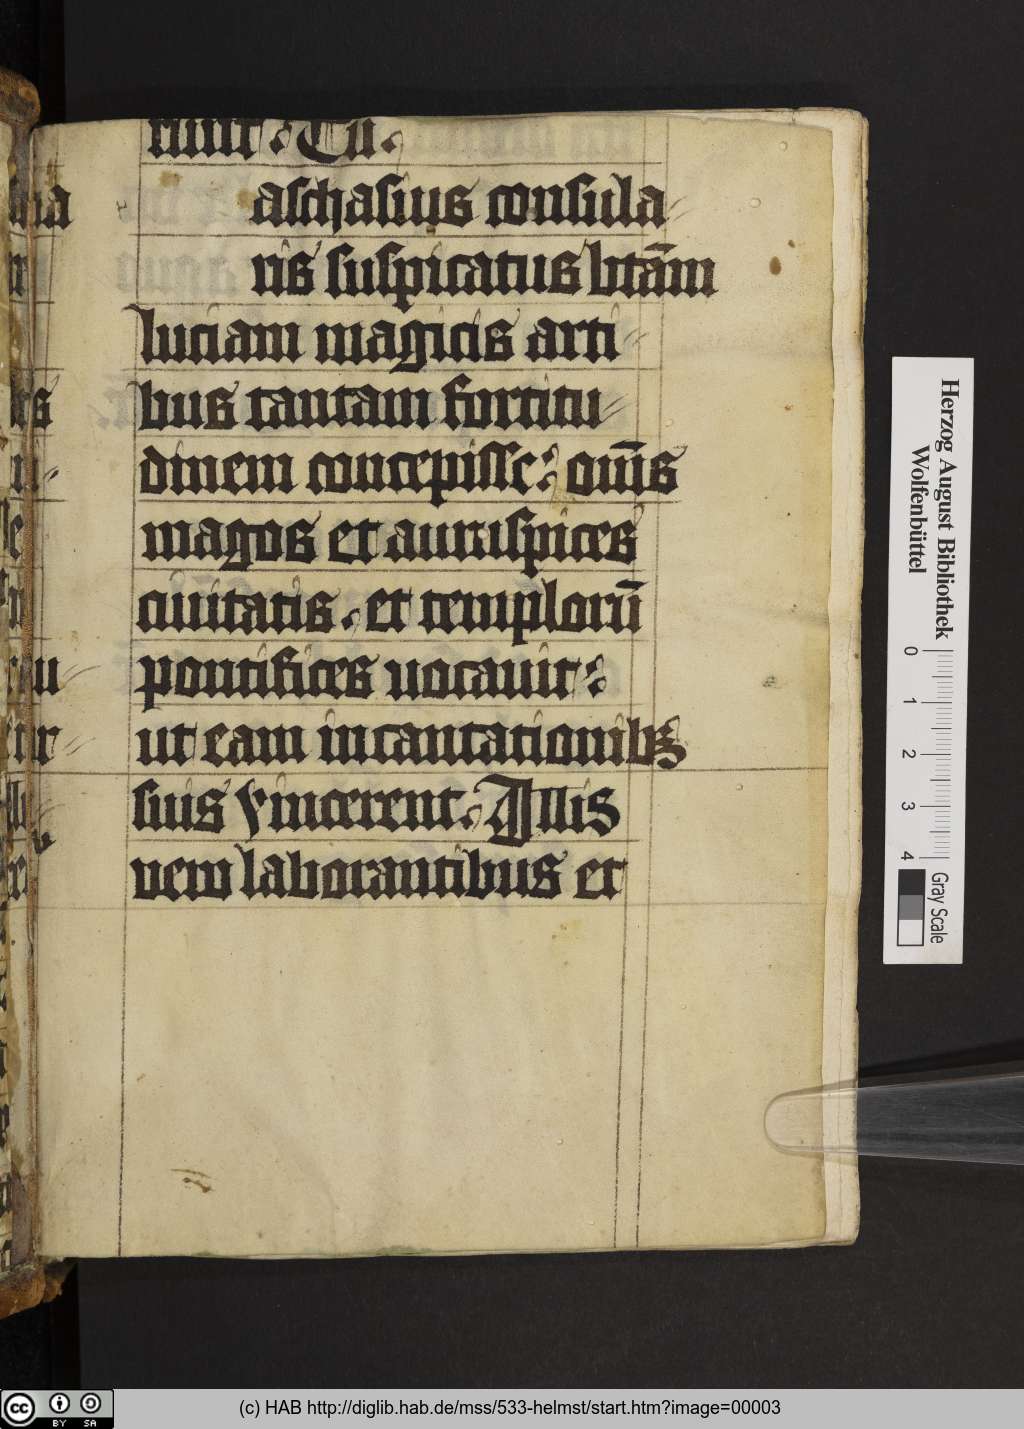 runt. Tu.
aschasius consula
ris suspicatus btām
luciam magicis arti
bus tantam fortitu
dinem concepisse: om̄s
magos et aurispices
ciuitatis. et temploru̅
pontifices uocauit:
ut eam incantationibꝫ
suis vincerent. Illis
vero laborantibus et
Herzog August Bibliothek
Wolfenbüttel
0 1 2 3 4
Gray Scale
cc BY SA
(c) HAB http://diglib.hab.de/mss/533-helmst/start.htm?image=00003